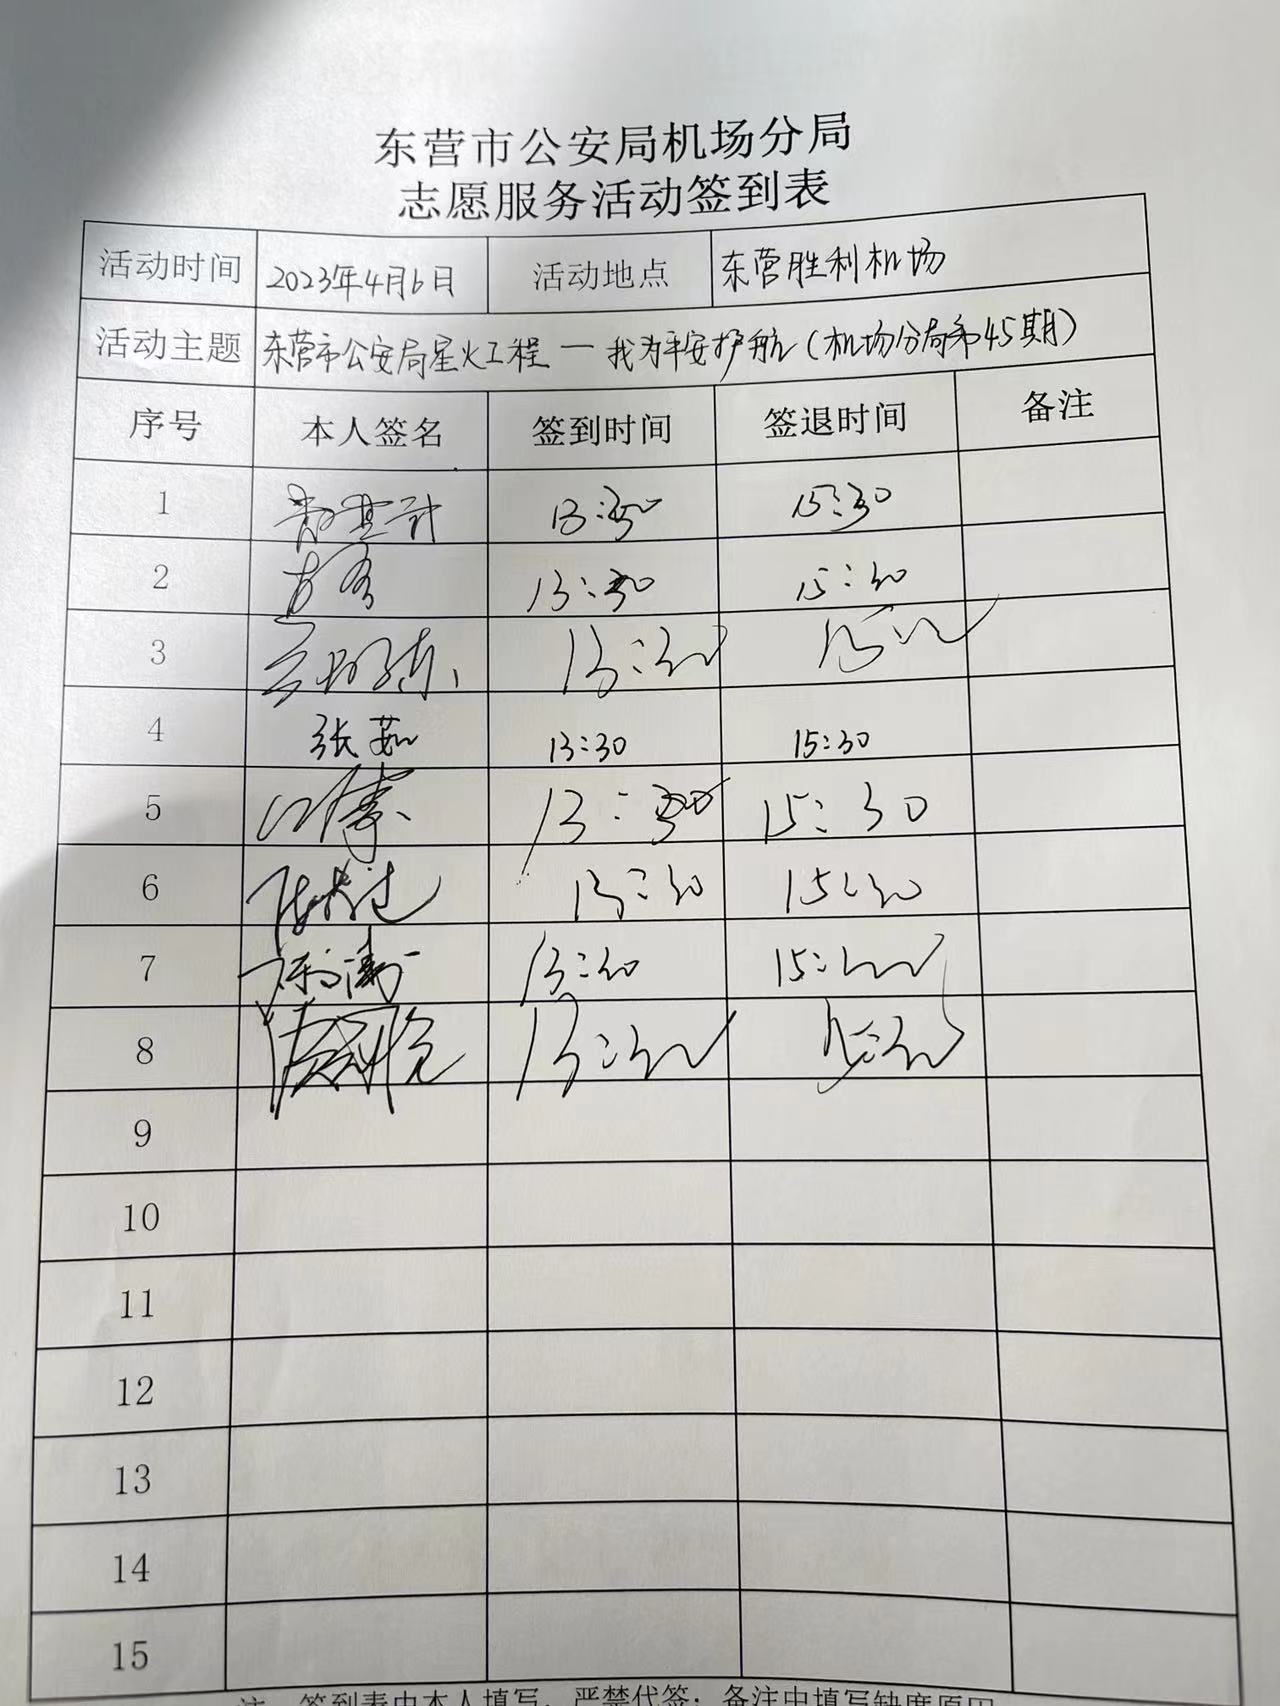 东营市公安局机场分局
志愿服务活动签到表
活动时间 2023年4月6日 活动地点 东营胜利机场
活动主题 东营市公安局星火工程 — 我为平安护航(机场分局第45期)
序号 本人签名 签到时间 签退时间 备注
1 13:30 15:30
2 13:30 15:30
3 13:30
4 张茹 13:30 15:30
5 13:30 15:30
6 13:30 15:30
7 13:30 15:30
8 13:30 15:30
9
10
11
12
13
14
15
注 签到表由本人填写,严禁代签;备注中填写缺席原因